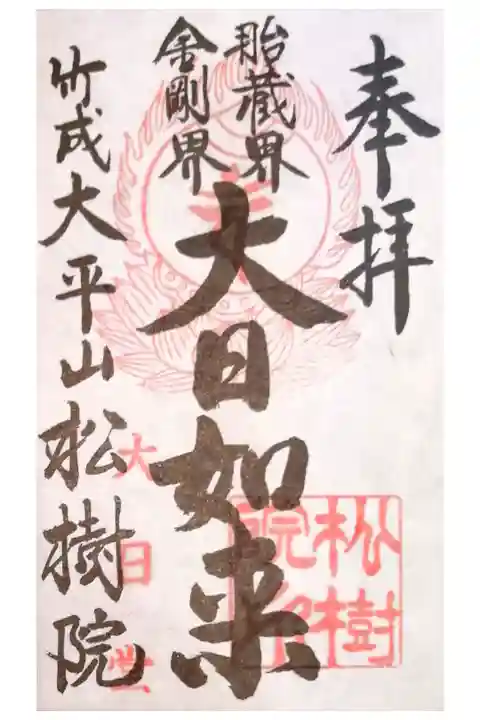 奉拝
胎蔵界
金剛界
大日如来
竹成大平山松樹院
大日堂
松樹
院印